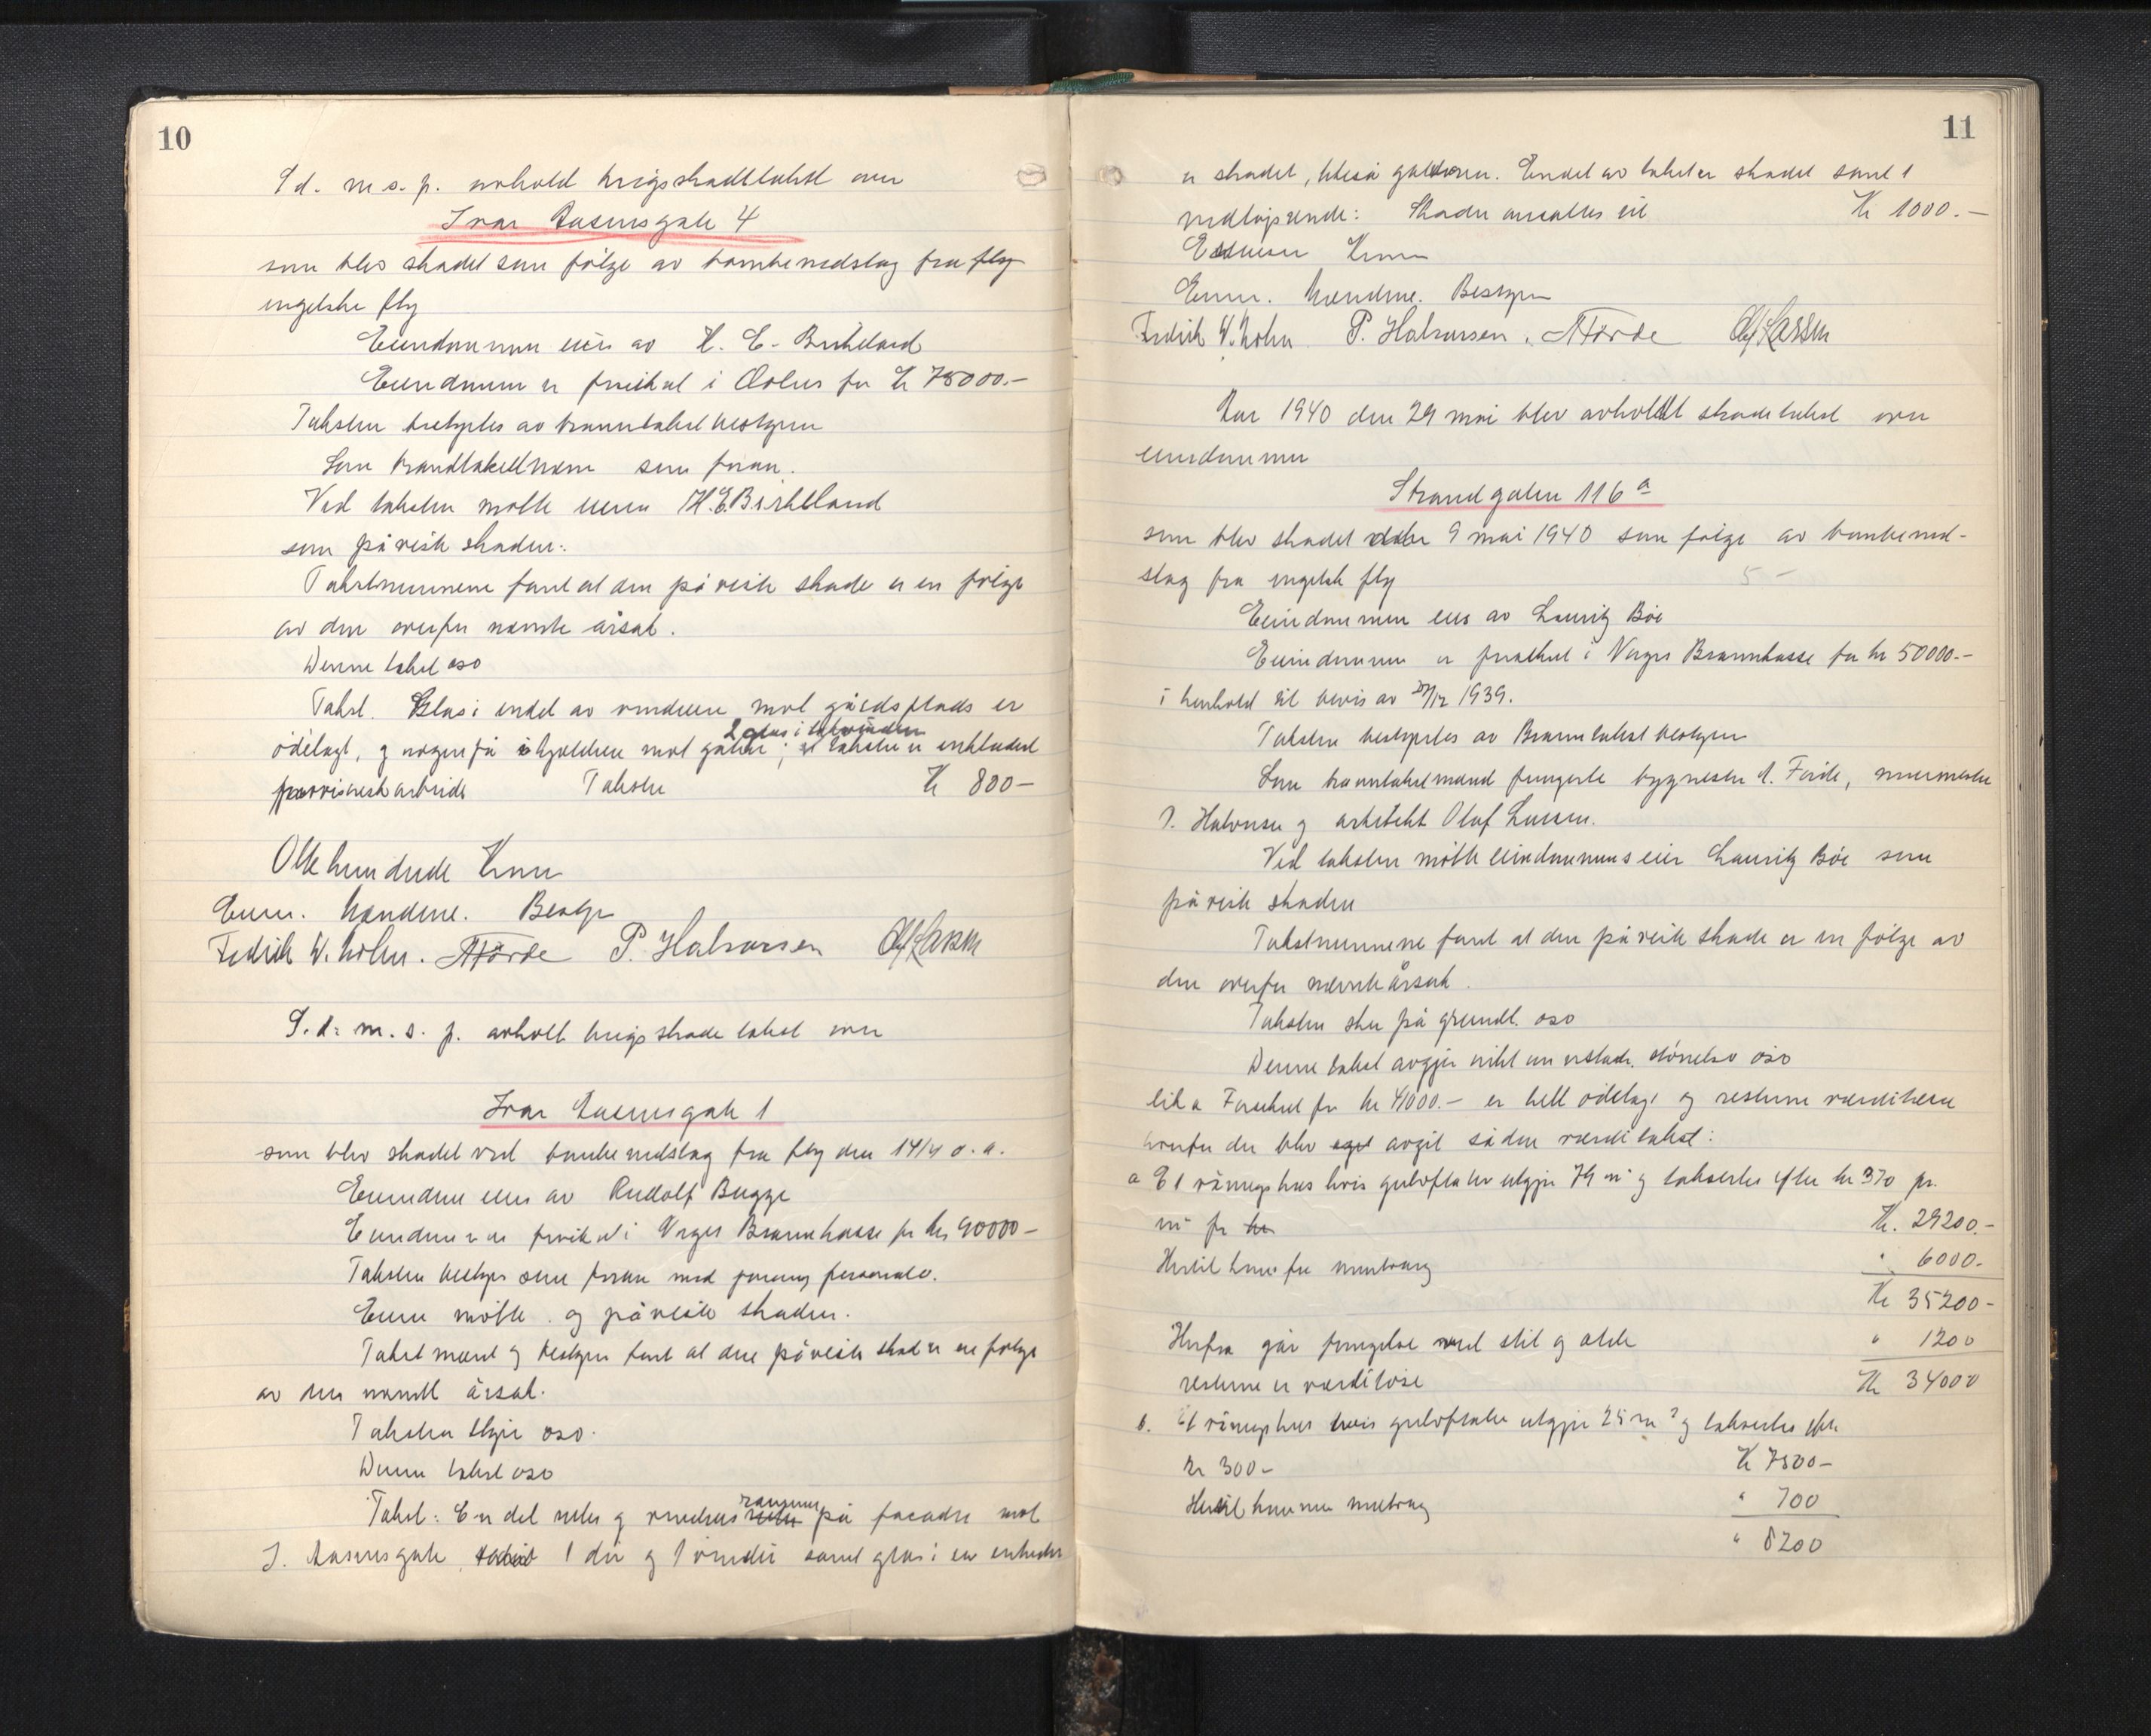 10
S. d. m. s. p. avhold krigsskadetakst over
Ivar Aasensgate 4
som blev skadet som følge av bombenedslag fra fly
engelske fly
Eiendommen eies av H. E. Birkeland
Eiendommen er forsikret i Æolus for kr 75000.-
Taksten bestyrtes av branntakstbestyrer
Som brandtakstmenn som foran.
Ved taksten møtte eieren H. E. Birkeland
som påviste skaden.
Takstmennene fant at den påviste skade er en følge
av den ovenfor nævnte årsak.
Denne takst oso
Takst. Glas i endel av vinduene mot gårdsplads er
2 glas i takvinduer
ødelagt, og nogen få i kjelderen mot gaten; i taksten er inkludert
provisorisk arbeide Taksten Kr 800-
Otte hundrede Kroner
Eieren. Mændene. Bestyr
Fredrik W. Holm. A Førde P. Halvorsen Olaf Lassen
S. d. m. s. p. avholt krigsskadetakst over
Ivar Aasensgate 1
som blev skadet ved bombenedslag fra fly den 14/4 d. a.
Eiendom eies av Rudolf Bugge
Eiendommen er forsikret i Norges Brannkasse for kr 90000-
Taksten bestyres som foran med samme personale.
Eieren møtte og påviste skaden.
Takstmænd og bestyrer fant at den påviste skade er en følge
av den nævnte årsak.
Taksten skjer oso.
Denne takst oso
rammer
Takst: En del ruter og vindus ruter på facaden mot
I. Aasensgate, 1 dør og 1 vindu samt glas i en enkelte
11
er skadet, likeså gatedøren. Endel av taket er skadet samt 1
nedløpsrende: Skaden ansættes til Kr 1000.-
Ettusen Kroner
Eieren. Mændene. Bestyrer
Fredrik W. Holm. P. Halvorsen. A Førde Olaf Lassen
Aar 1940 den 29 mai blev avholdt skadetakst over
eiendommen
Strandgaten 116 a
som blev skadet den 9 mai 1940 som følge av bombened-
slag fra engelsk fly
5 -
Eiendommen eies av Lauritz Bøe
Eiendommen er forsikret i Norges Brannkasse for kr 50000.-
i henhold til bevis av 27/12 1939.
Taksten bestyrtes av Branntakstbestyrer
Som branntakstmænd fungerte byggmester A. Førde, murmester
P. Halvorsen og arkitekt Olaf Lassen.
Ved taksten møtte eiendommens eier Lauritz Bøe som
påviste skaden
Takstmennene fant at den påviste skade er en følge av
den ovenfor nævnte årsak.
Taksten sker på grundl. oso
Denne takst avgjør ikke om erstatn. størrelse oso
lit a Forsikret for kr 41000.- er helt ødelagt og resterne værdiløse
hvorfor der blev avgit sådan værditakst:
a Et våningshus hvis gulvflate utgjør 79 m² og takseres efter kr 370 pr.
m² for kr Kr. 29200.-
Hertil kommer for murtrang " 6000.-
Kr 35200-
Herfra går forringelse ved slit og ælde " 1200
resterne er værdiløse Kr 34000
b. Et våningshus hvis gulvflate utgjør 25 m² og takseres efter
kr 300- Kr 7500-
Hertil kommer murtrang " 700
" 8200